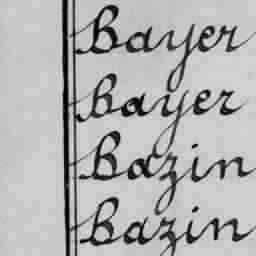 Bayer
Bayer
Bazin
Bazin